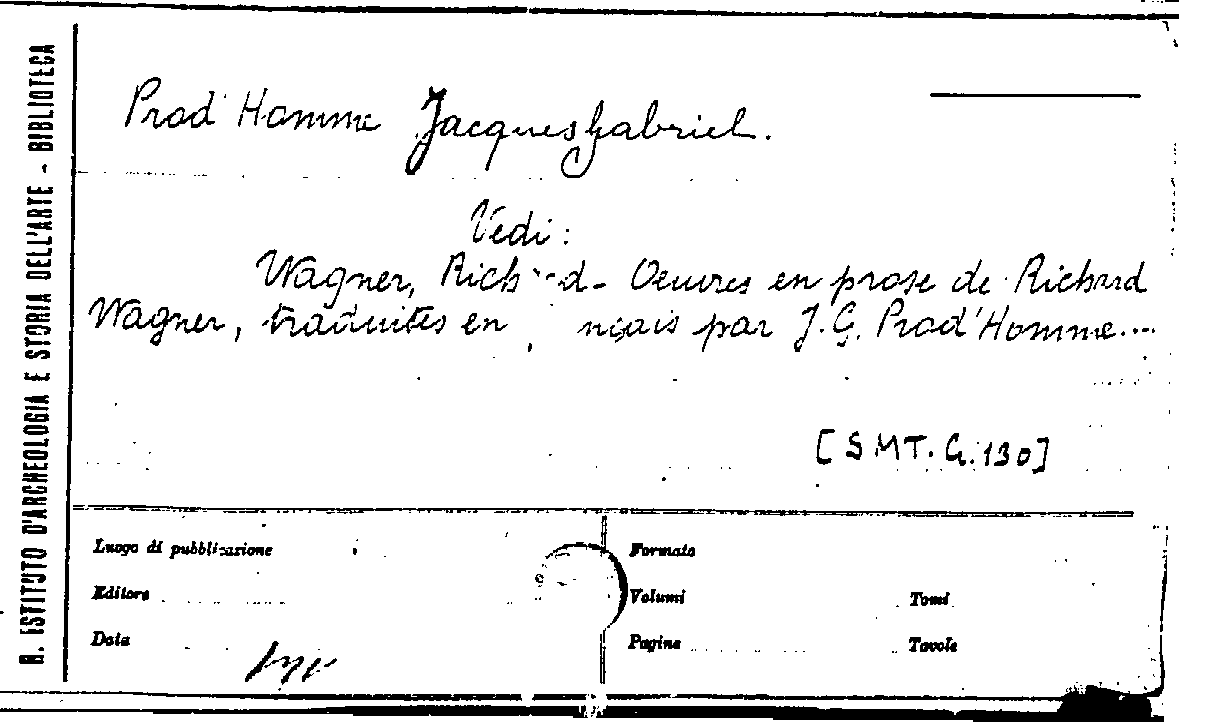 R. ISTITUTO D'ARCHEOLOGIA E STORIA DELL'ARTE - BIBLIOTECA
Prod'Homme Jacques Gabriel.
Vedi:
Wagner, Rich d- Oeuvres en prose de Richard
Wagner, traduites en nçais par J.G. Prod'Homme....
[SMT. G. 130]
Luogo di pubblicazione
Formato
Editore
Volumi Tomi
Data
Pagine Tavole